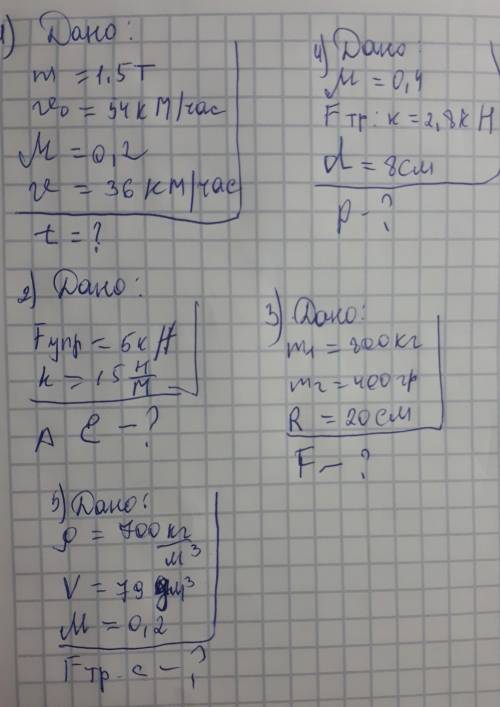 1) Дано:
m = 1,5 т
v₀ = 54 км/час
M = 0,2
v = 36 км/час
t = ?
4) Дано:
M = 0,4
Fтр.к = 2,8 кН
d = 8 см
p - ?
2) Дано:
Fупр = 6 кН
k = 15 Н/м
Δ ℓ - ?
3) Дано:
m₁ = 300 кг
m₂ = 400 гр
R = 20 см
F - ?
5) Дано:
ρ = 700 кг/м³
V = 79 дм³
M = 0,2
Fтр.с - ?